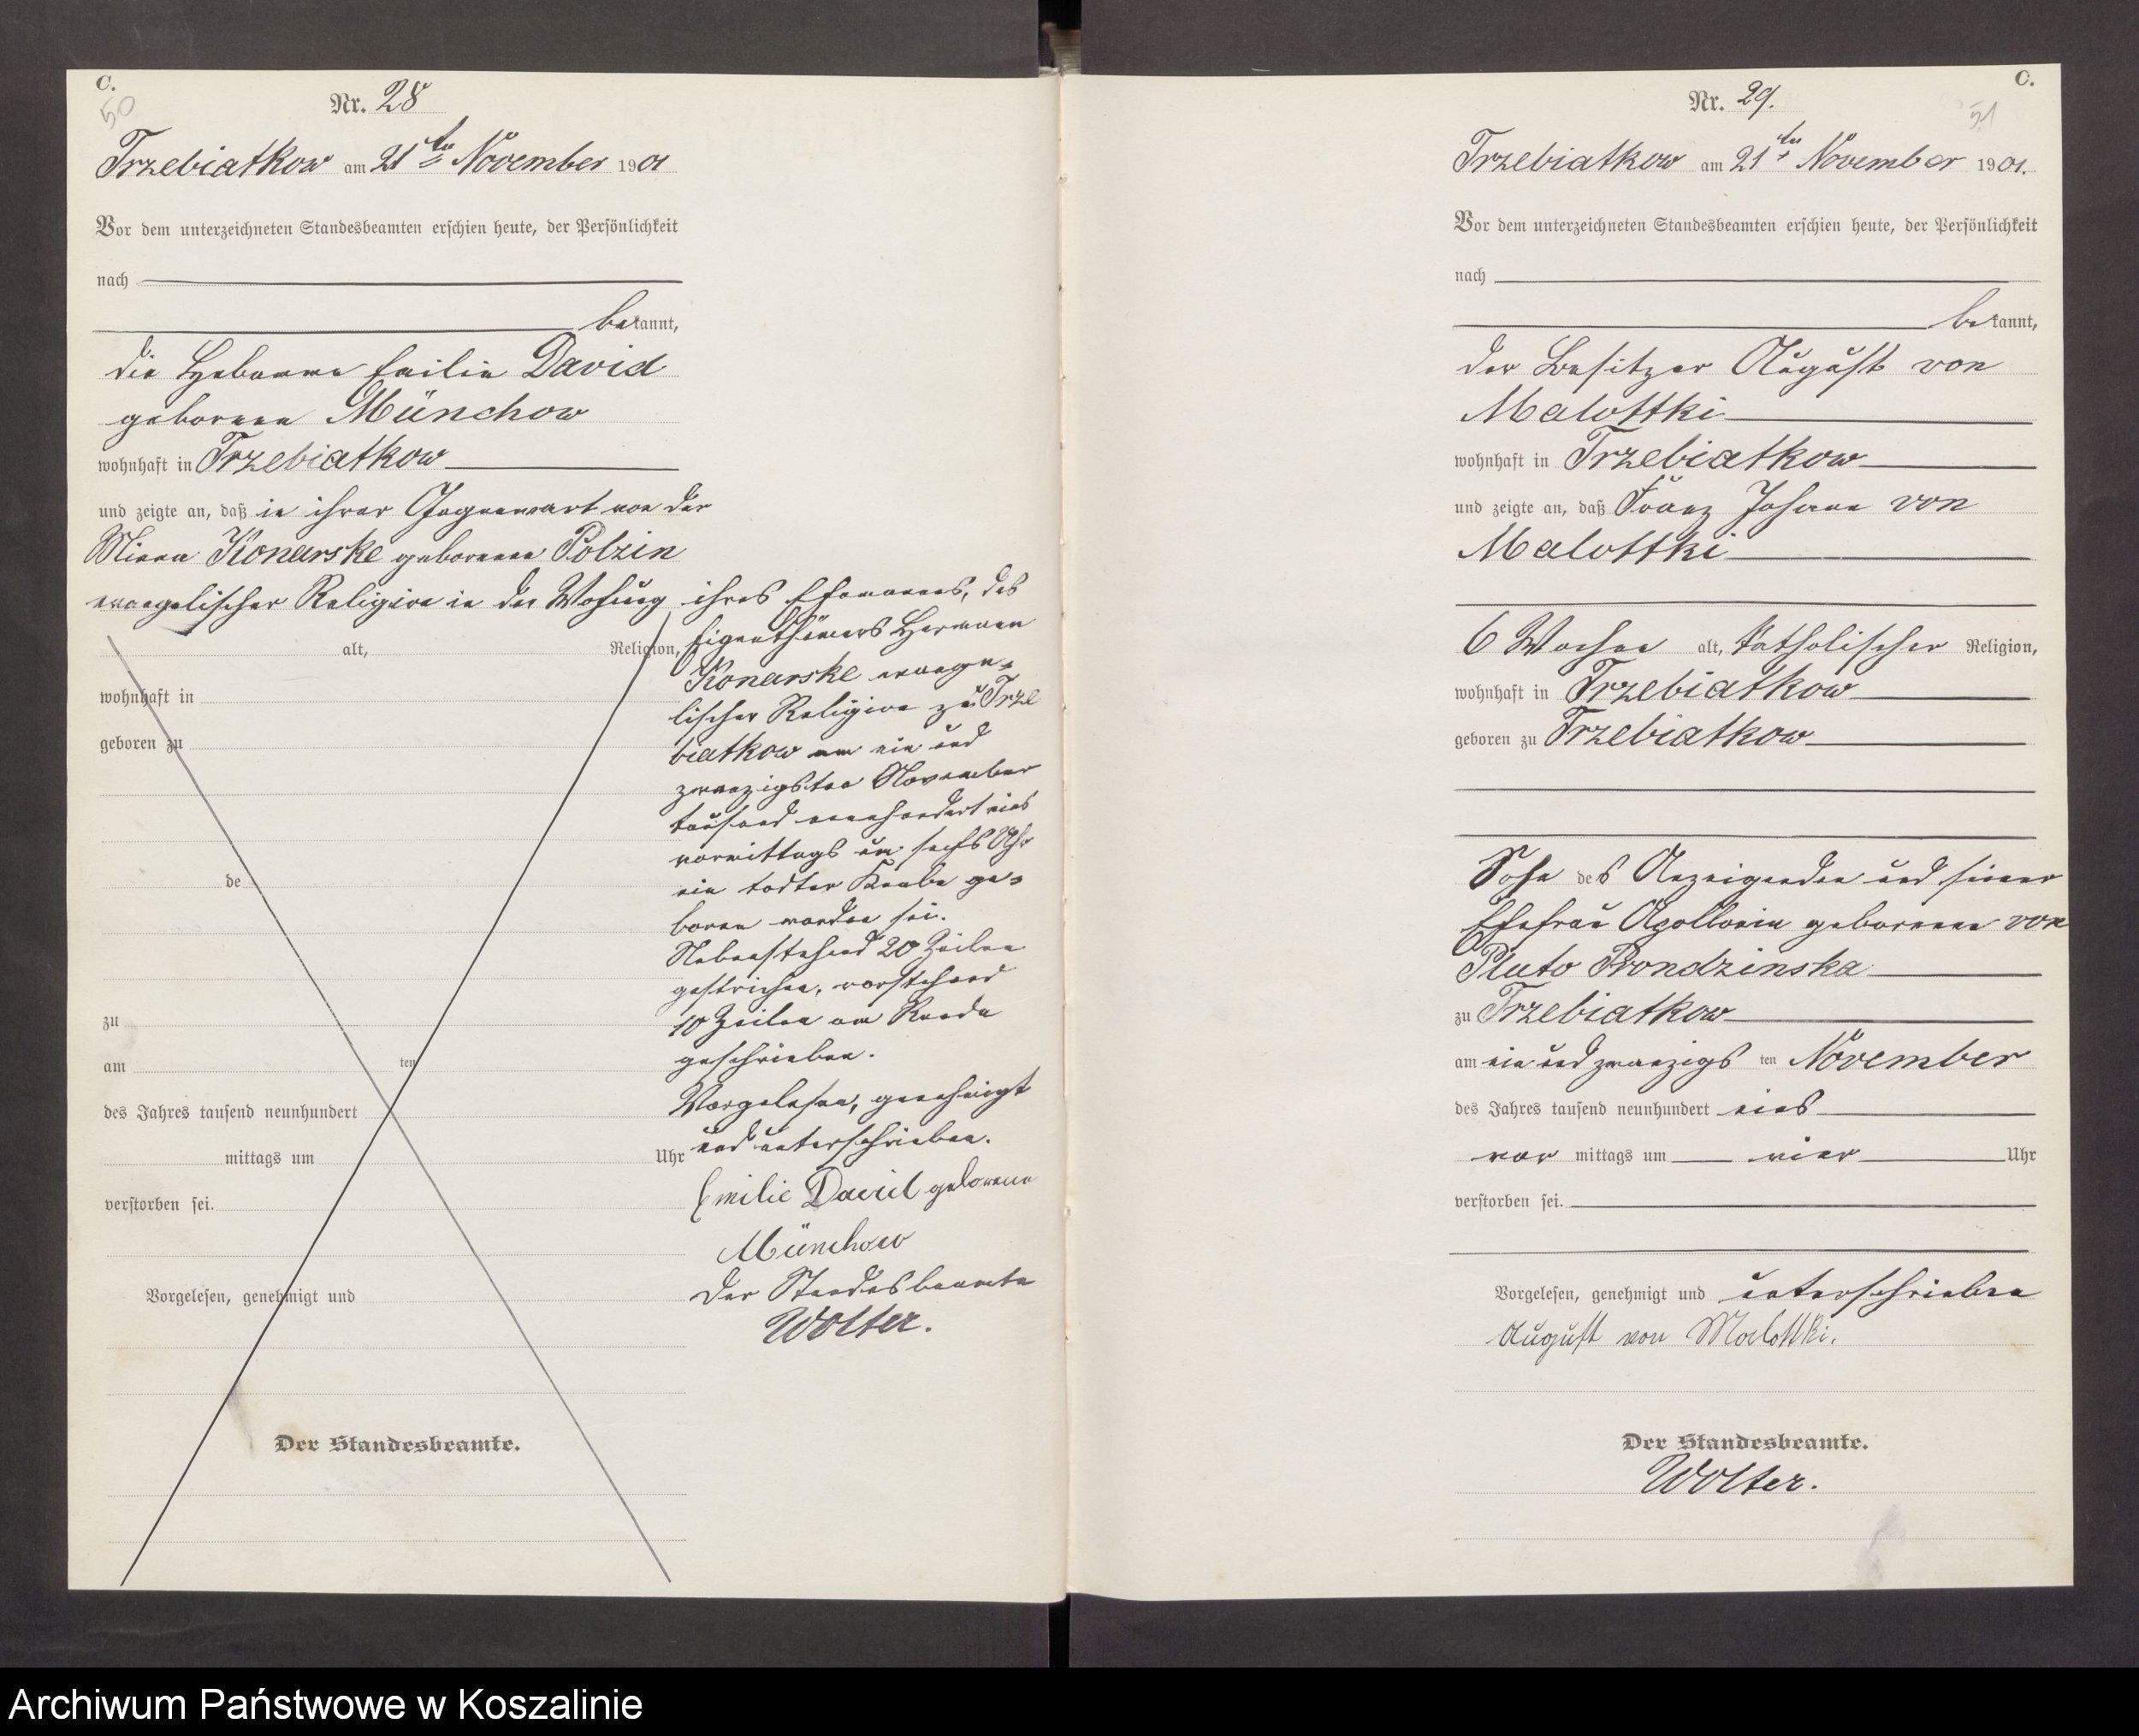 C.
50
Nr. 28
Trzebiatkow am 21ten November 1901
Vor dem unterzeichneten Standesbeamten erschien heute, der Persönlichkeit
nach
bekannt,
die Hebamme Emilie David
geborene Münchow
wohnhaft in Trzebiatkow
und zeigte an, daß in ihrer Gegenwart von der
Minna Konarske geborenen Polzin
evangelischer Religion in der Wohnung ihres Ehemannes, des
Eigenthümers Hermann
Konarske evange-
lischer Religion zu Trze
biatkow am ein und
zwanzigsten November
tausend neunhundert eins
vormittags um sechs Uhr
ein todter Knabe ge-
boren worden sei.
Nebenstehend 20 Zeilen
gestrichen, vorstehend
10 Zeilen am Rande
geschrieben.
Vorgelesen, genehmigt
und unterschrieben.
Emilie David geborene
Münchow
Der Standesbeamte
Wolter.
alt, Religion,
wohnhaft in
geboren zu
de
zu
am ten
des Jahres tausend neunhundert
mittags um Uhr
verstorben sei.
Vorgelesen, genehmigt und
Der Standesbeamte.
C.
51
Nr. 29.
Trzebiatkow am 21ten November 1901.
Vor dem unterzeichneten Standesbeamten erschien heute, der Persönlichkeit
nach
bekannt,
der Besitzer August von
Malottki
wohnhaft in Trzebiatkow
und zeigte an, daß Franz Johann von
Malottki
6 Wochen alt, katholischer Religion,
wohnhaft in Trzebiatkow
geboren zu Trzebiatkow
Sohn des Anzeigenden und seiner
Ehefrau Apollonia geborenen von
Pluto Prondzinska
zu Trzebiatkow
am ein und zwanzigs ten November
des Jahres tausend neunhundert eins
vor mittags um vier Uhr
verstorben sei.
Vorgelesen, genehmigt und unterschrieben
August von Malottki.
Der Standesbeamte.
Wolter.
Archiwum Państwowe w Koszalinie